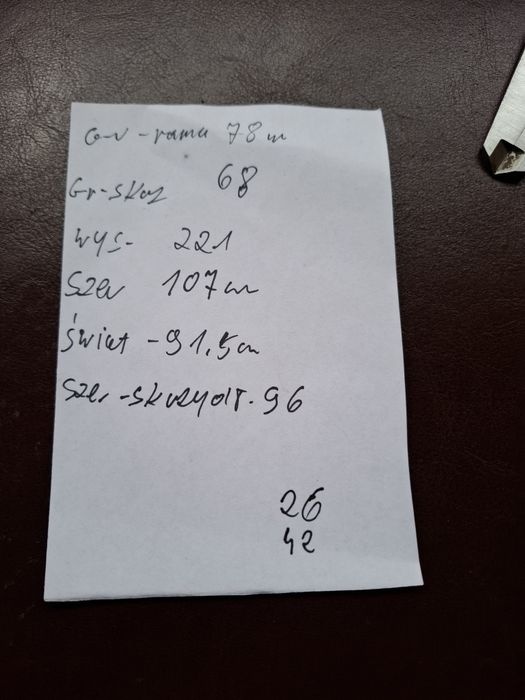 Gr-rama 78m
Gr-skrz 68
wys- 221
Szer 107cm
Świat -91,5cm
Szer-skrzydł. 96
26
42